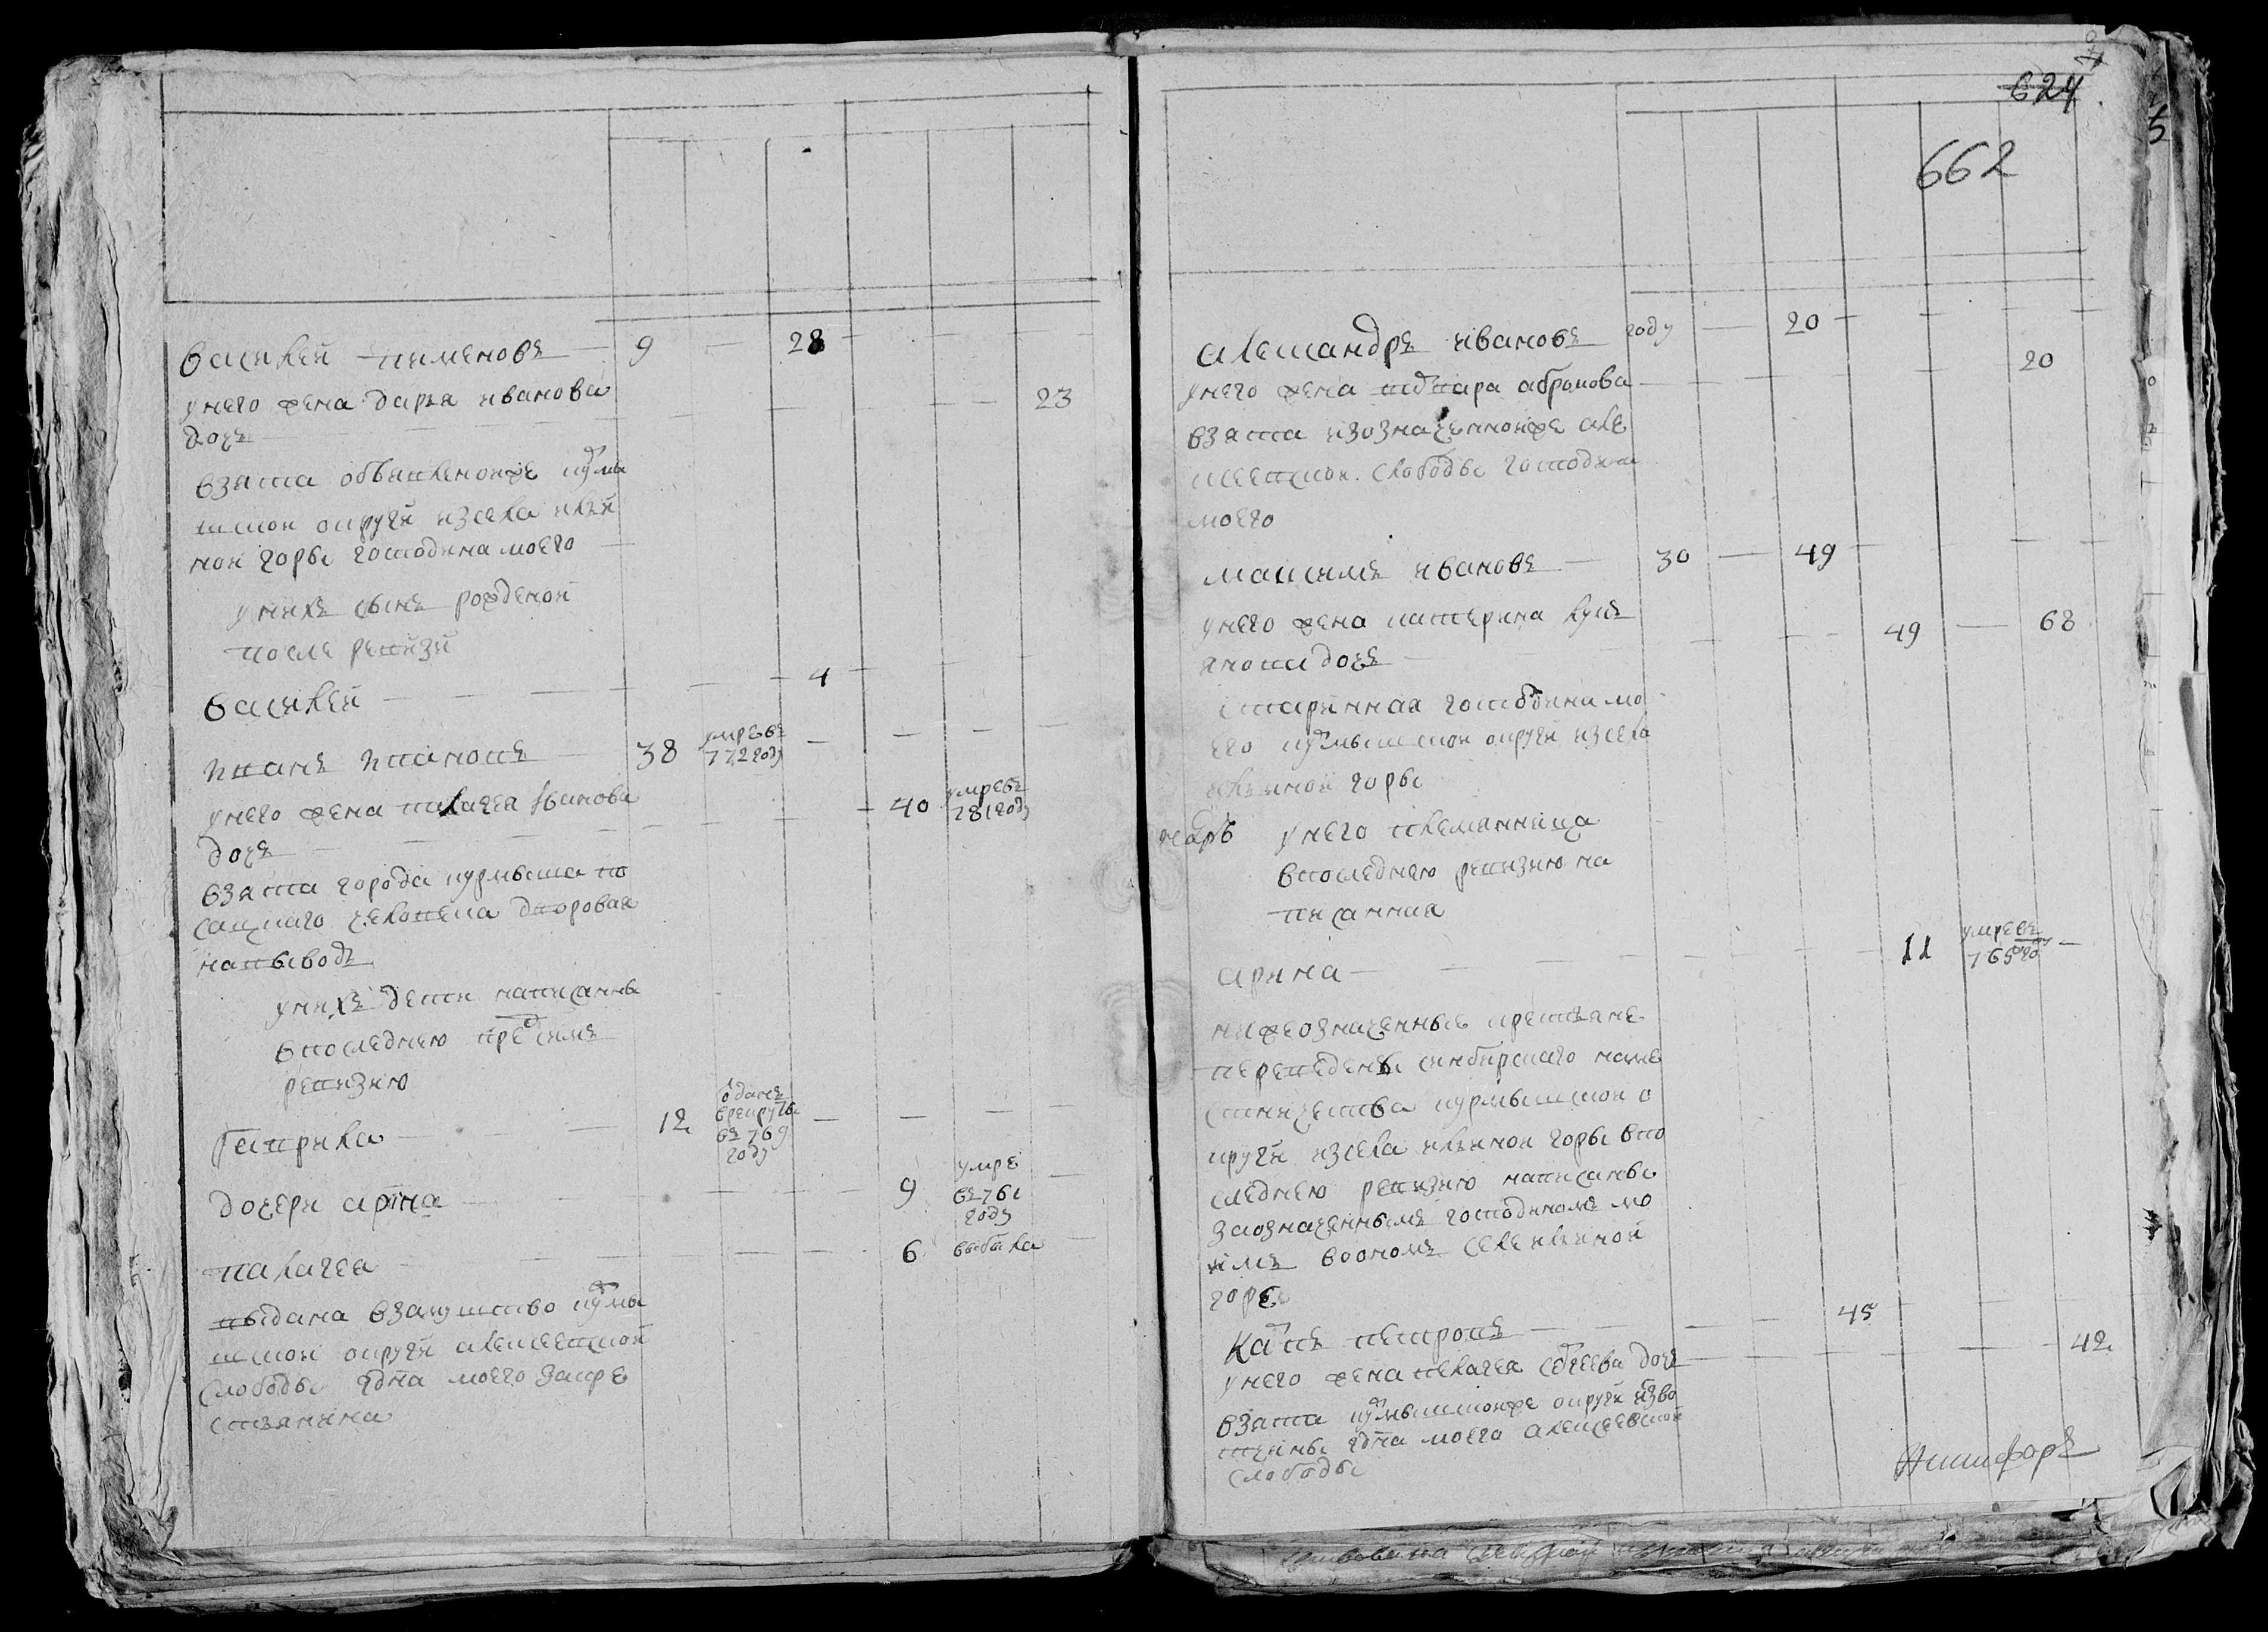 василей пименовъ — 9 — 28
у него жена дарья иванова 23
дочь
взята объявленойже курмы
шской округи изсела ильи
ной горы господина моего
у нихъ сынъ рожденой
после ревизи
василей — 4
иванъ ивановъ — 38 умре въ 772 году
у него жена пелагея иванова 40 умре въ 781 году
дочь
взята города курмыша по
сацкаго человека дворовая
на выводъ
у нихъ дети написанны
в последнею пред симъ
ревизию
гаврила — 12 отданъ в рекруты въ 769 году
дочери арина — 9 умре въ 761 году
палагея — 6 выбыла
выдана взамужство курмы
шской округи алексеевской
слободы гдна моего за кре
стьянина
624
662
александръ ивановъ году — 20
у него жена варвара абрамова 20
взята изозначеннойже але
ксеевской слободы господина
моего
максимъ ивановъ — 30 — 49
у него жена катерина лукь 49 — 68
янова дочь
старинная господина мо
его курмышской округи изсела
ильиной горы
у него племянница
в последнею ревизию на
писанная
арина — 11 умре въ 765 году
нижеозначенные крестьяне
переведены синбирскаго наме
стничества курмышской о
круги изсела ильиной горы впо
следнею ревизию написаны
заозначеннымъ господиномъ мо
имъ воономъ селе ильиной
горе
карпъ петровъ — 45
у него жена пелагея сергеева дочь 42
взята курмышскойже округи изво
тчины гдна моего алексеевской
слободы
Никифоръ